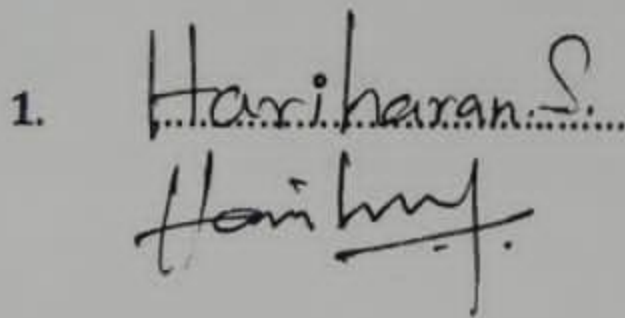 1. Hariharan. S.